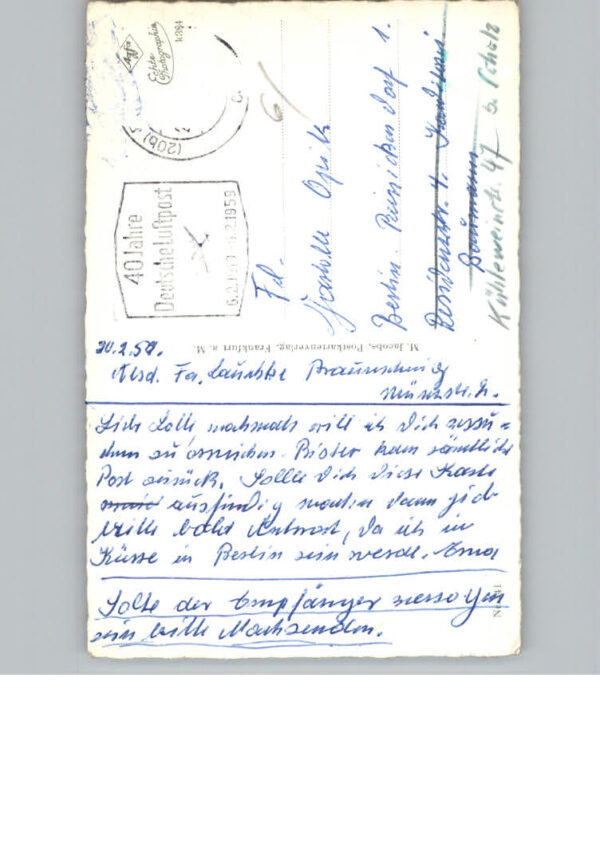 20.2.59.
Absd. Fa. Lauchke Braunschweig
Münzstr. 2.
Liebe Lotte nochmals will ich Dich versu-
chen zu erreichen. Bisher kam sämtliche
Post zurück. Sollte Dich diese Karte
ausfindig machen dann gieb
bitte bald Antwort, da ich in
Kürze in Berlin sein werde. Erna
Sollte der Empfänger verzogen
sein bitte Nachsenden.
Frl.
Charlotte Opitz
Berlin Reinickendorf 1.
Residenzstr. 4. Konditorei
Baumann
Kühleweinstr. 47 b. Scholz
40 Jahre
Deutsche Luftpost
6.2.1919 - 6.2.1959
(20b)
Agfa
Echte
Photographie
K384
M. Jacobs, Postkartenverlag, Frankfurt a. M.